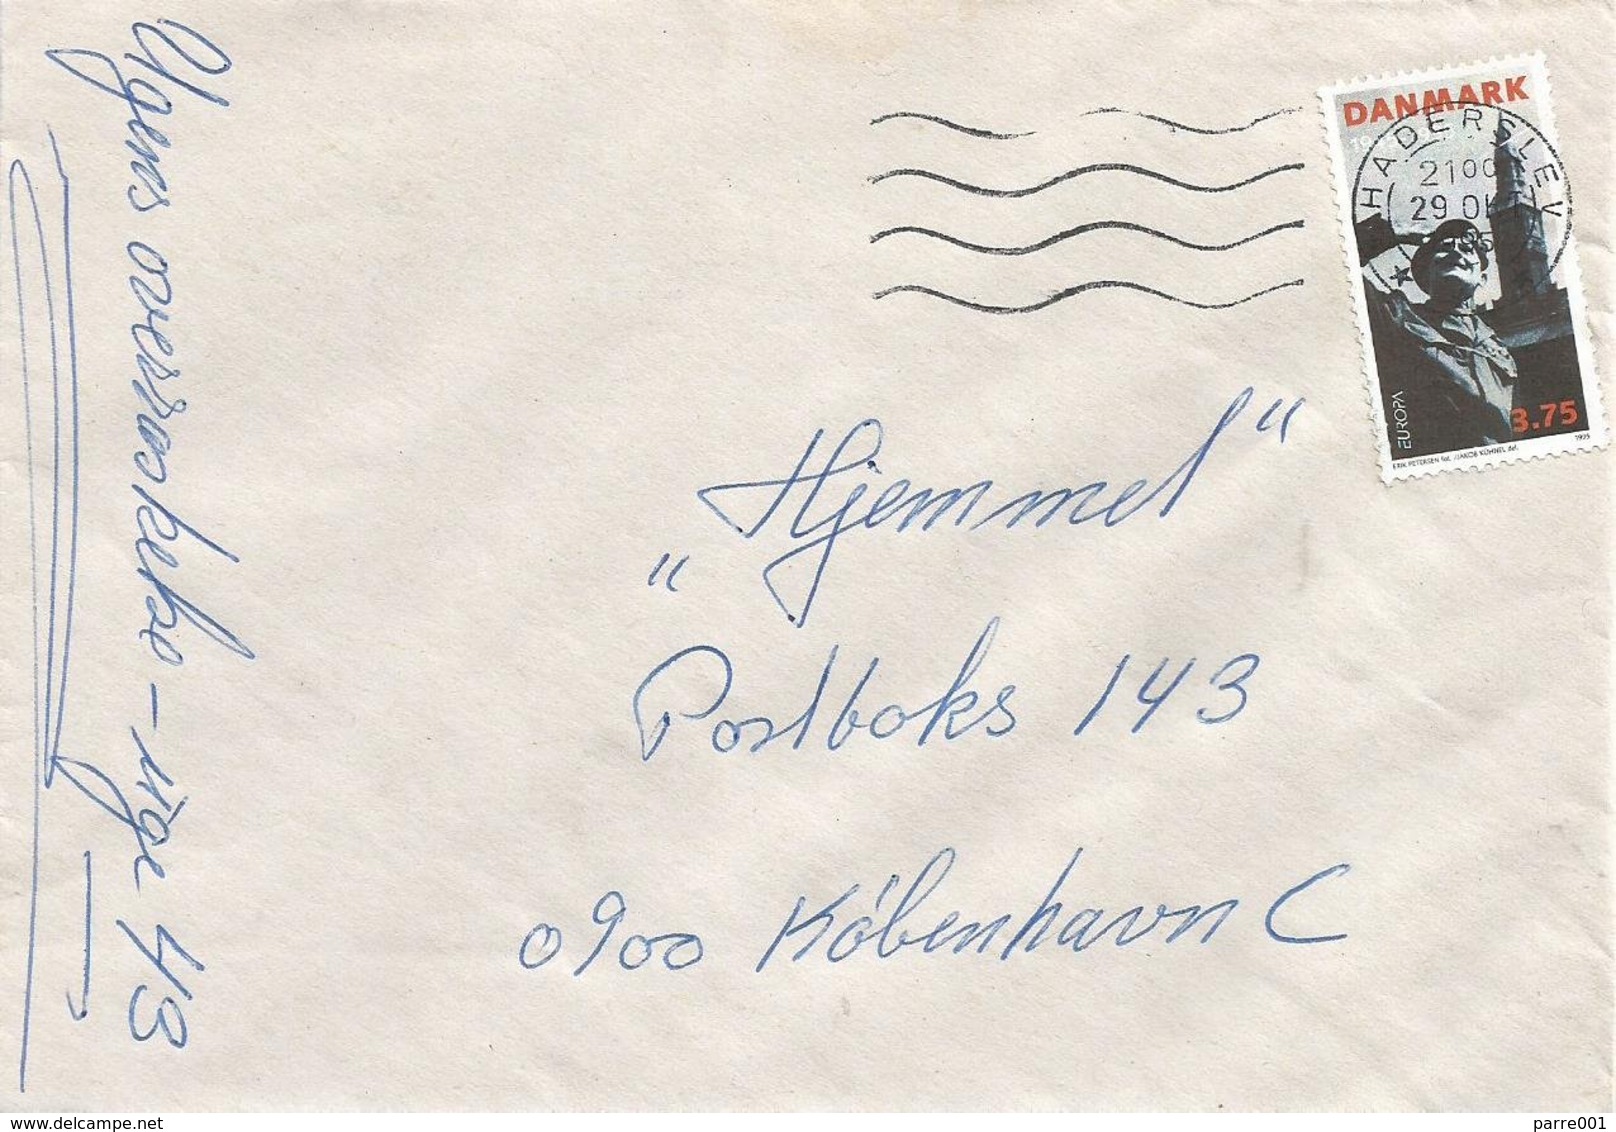 Ugens overraskelse - uge 43
DANMARK
HADERSLEV
2100
29 OKT
1995
EUROPA
3.75
1995
ERIK PETERSEN fot. /JAKOB KÜHNEL del.
„Hjemmet“
Postboks 143
0900 København C
delcampe.net
parre001